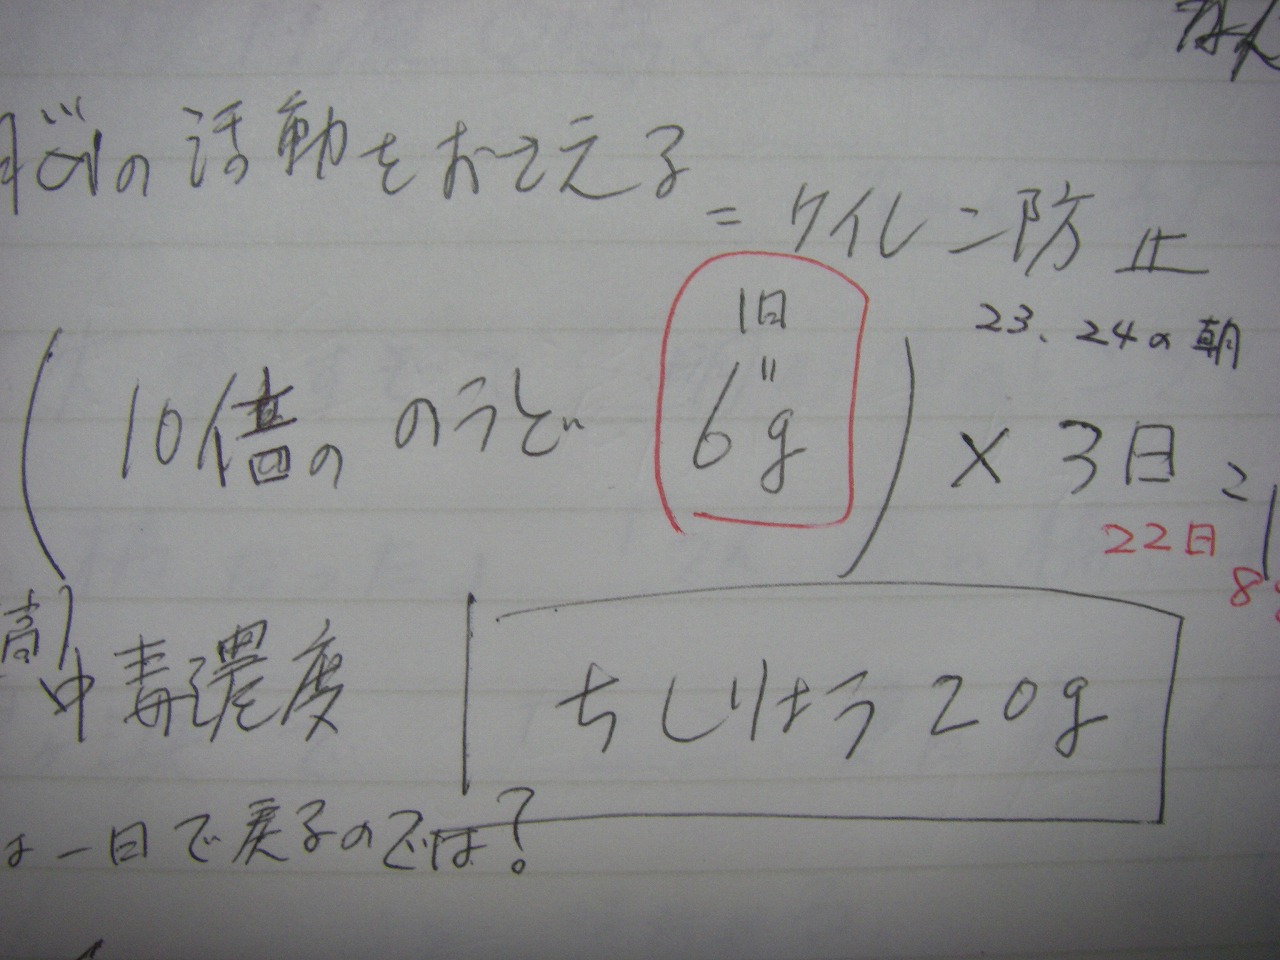 脳の活動をおさえる
=ケイレン防止
1日
23、24の朝
(10倍ののうど 6g)×3日=
22日
8
高
中毒濃度
ちしりょう20g
は一日で戻るのでは?